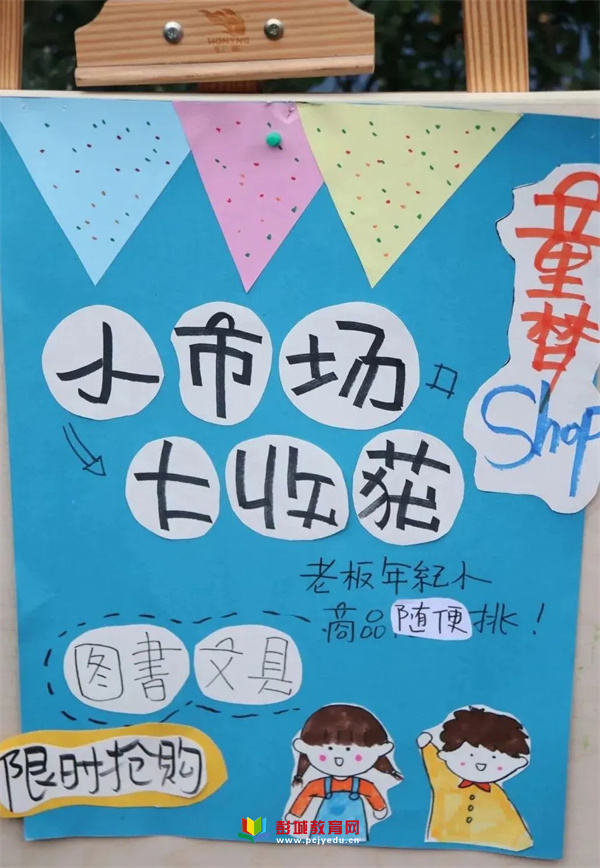 HONYNG
童梦
Shop
小市场
大收获
老板年纪小
商品随便挑！
图書 文具
限时抢购
彭城教育网
www.pcjyedu.cn